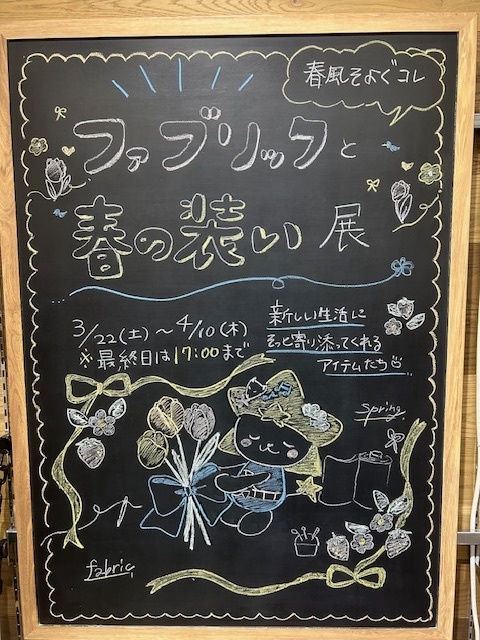 春風そよぐコレ
ファブリックと
春の装い 展
3/22(土)～4/10(木)
※最終日は17:00まで
新しい生活に
そっと寄り添ってくれる
アイテムたち
spring
fabric